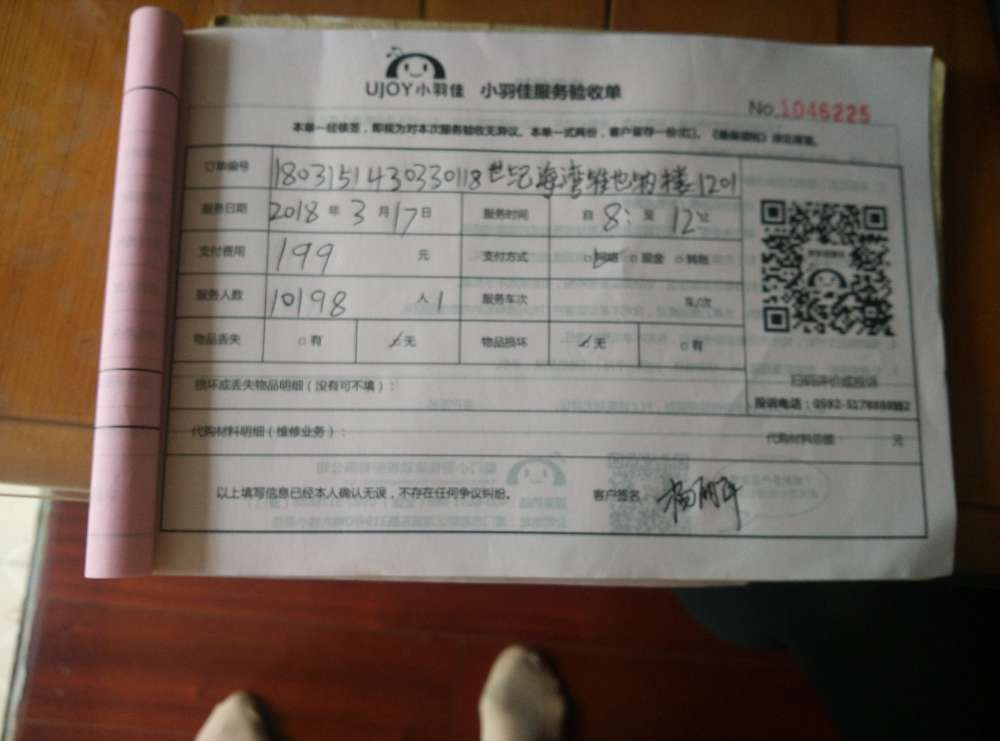 UJOY小羽佳 小羽佳服务验收单
No.1046225
本单一经修签，即视为对本次服务验收无异议。本单一式两份，客户留存一份(红)。
订单编号 1803151430330118世纪海湾维也纳楼1201
服务日期 2018 年 3 月 17 日 服务时间 自 8: 至 12:
支付费用 199 元 支付方式 □网络 □现金 □其他
服务人数 10198 人 1 服务车次 车/次
物品丢失 □有 □无 物品损坏 □无 □有
扫码评价或投诉
损坏或丢失物品明细（没有可不填）：
投诉电话：0592-5178888转2
代购材料明细（维修业务）： 代购材料总额 元
以上填写信息已经本人确认无误，不存在任何争议纠纷。 客户签名：